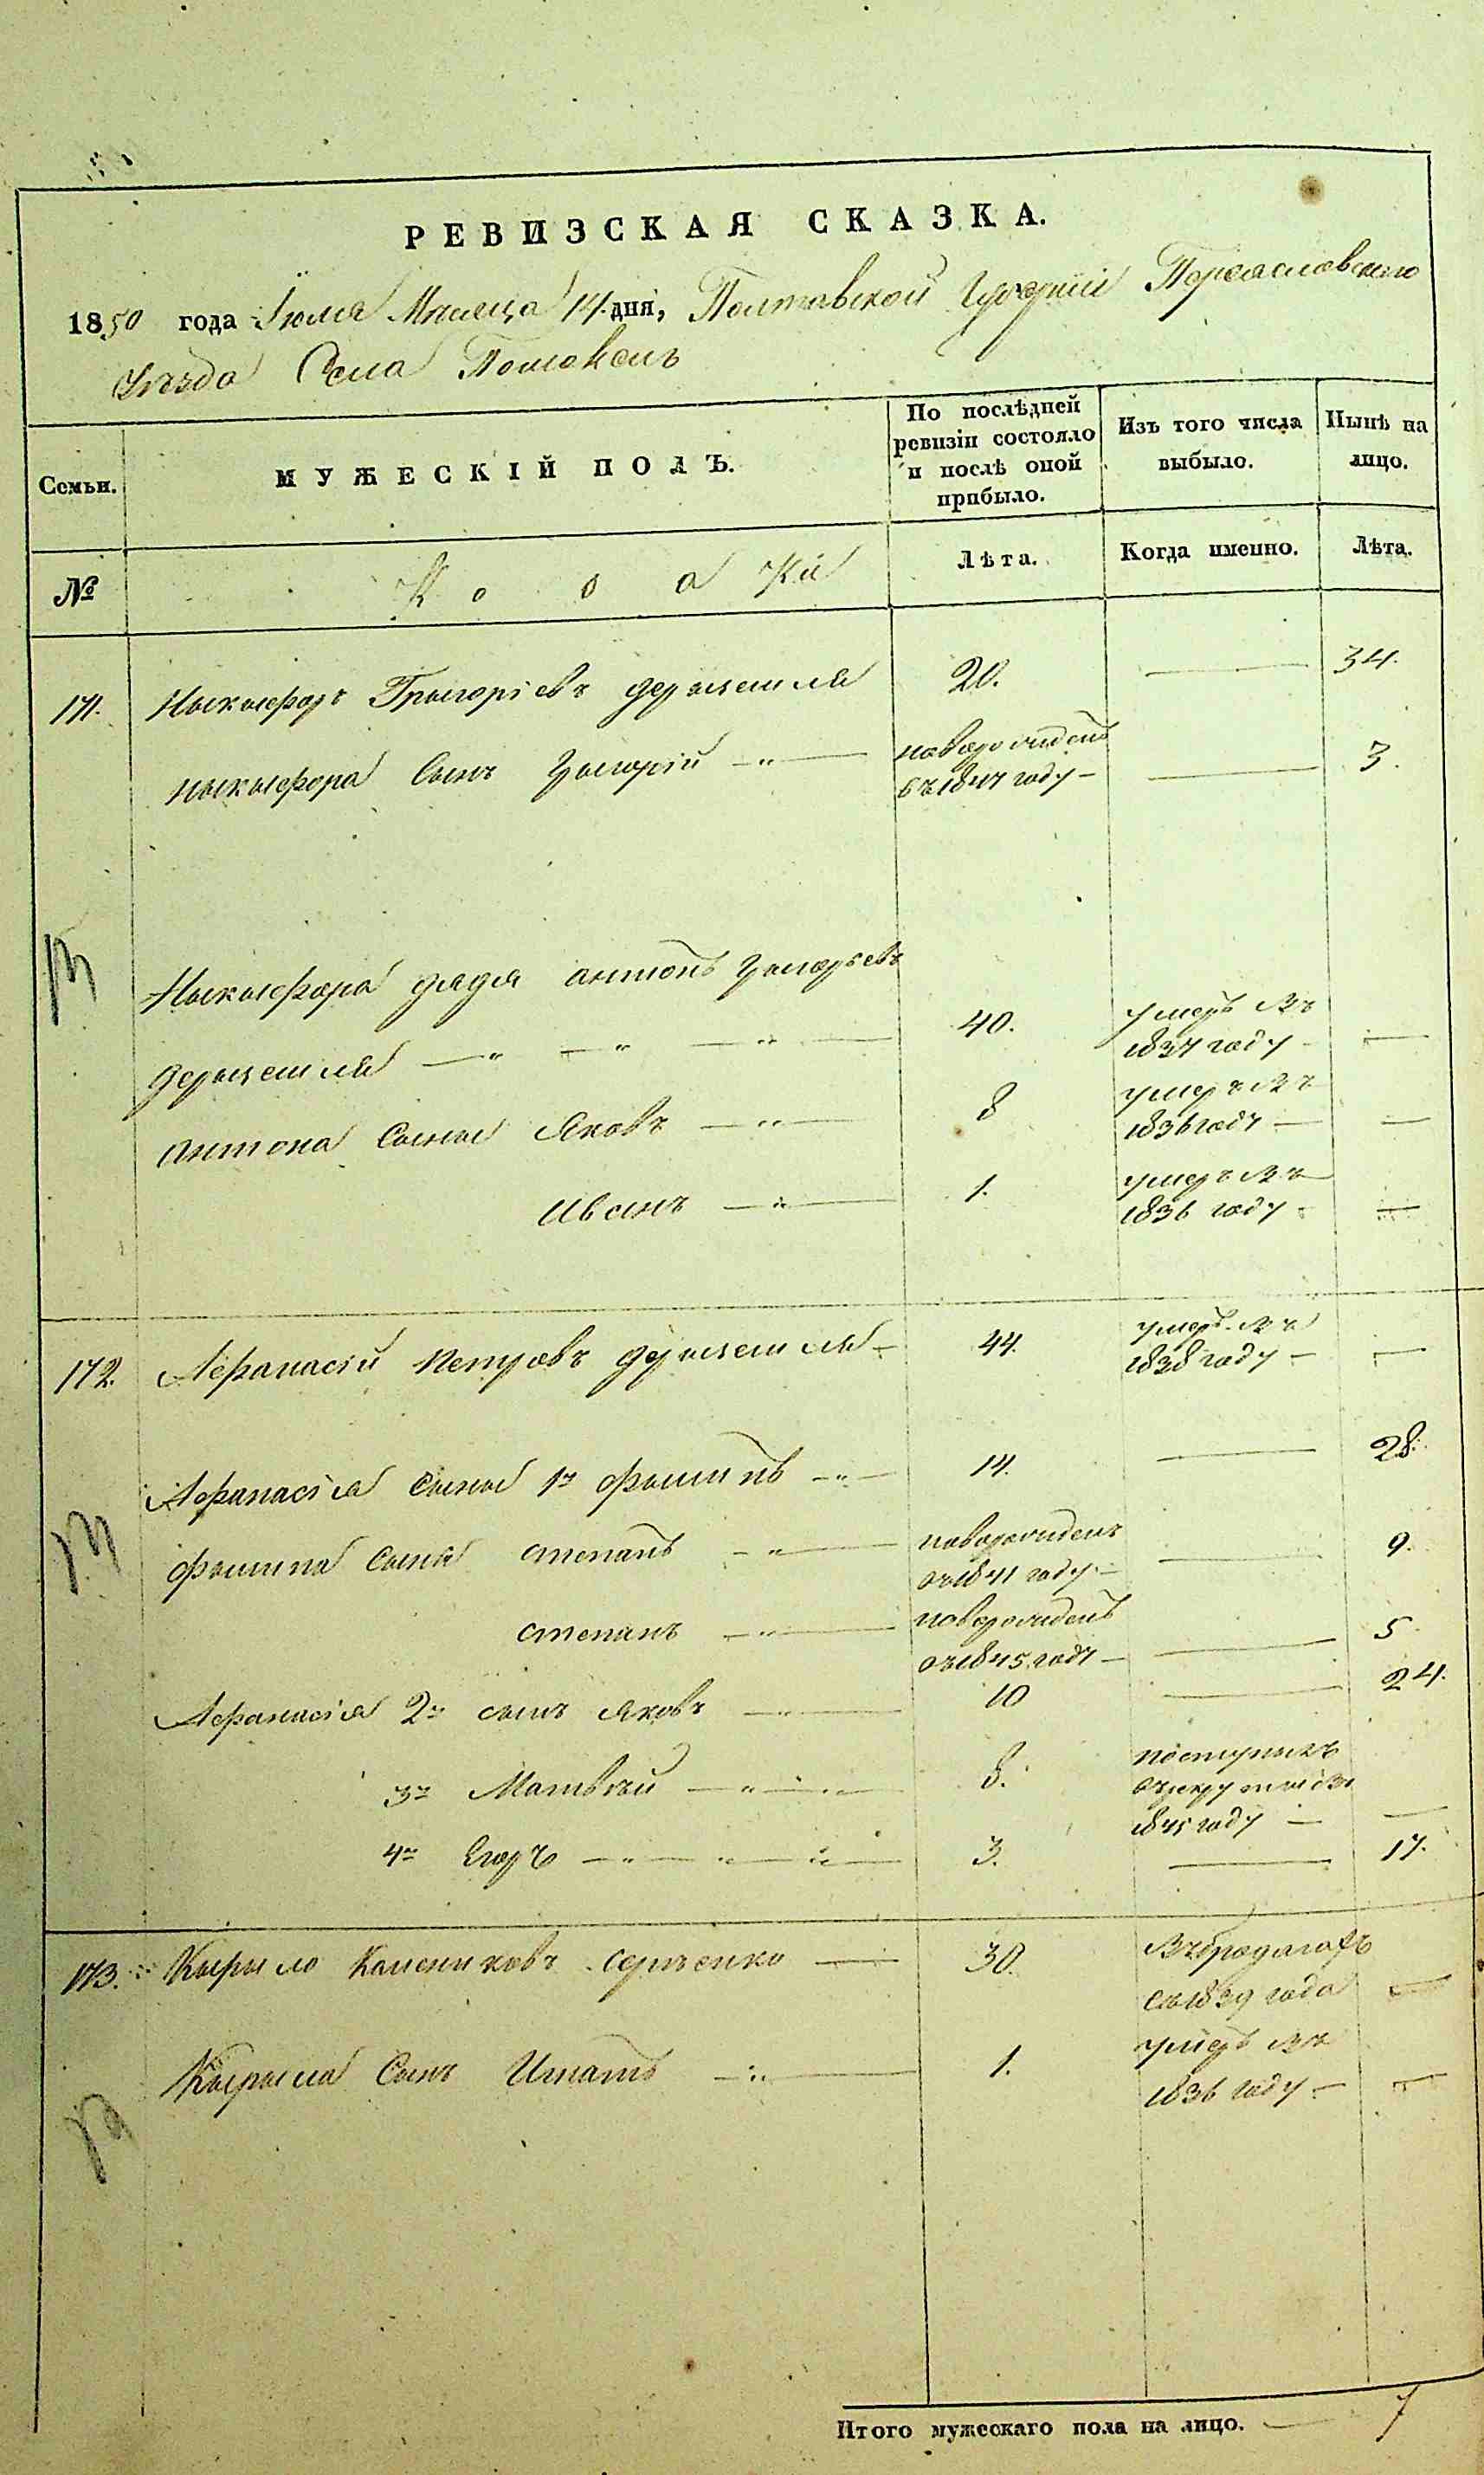 РЕВИЗСКАЯ СКАЗКА.
1850 года Іюля Мѣсяца 14 дня, Полтавской Губерніи Переасловского
Уѣзда Села Помоклъ
Семьи.
МУЖЕСКІЙ ПОЛЪ.
По послѣдней ревизіи состояло и послѣ оной прибыло.
Изъ того числа выбыло.
Нынѣ на лицо.
№
К о з а Ки
Лѣта.
Когда именно.
Лѣта.
171. Ныкыфоръ Грыгоріевъ 20. 34.
ныкыфора Сынъ Грыгорій новорожденъ
въ 1847 году 3.
Ныкыфора дядя антонъ Грыгорьевъ
40. умеръ въ
1837 году
антона Сыны Яковъ 8 умеръ въ
1836 году
Иванъ 1. умеръ въ
1836 году
172. Афанасій петровъ 44. умеръ въ
1838 году
Афанасія Сыны 1й Фылипъ 14. 28.
Фылипа Сыны степанъ новорожденъ
въ 1841 году 9.
степанъ новорожденъ
въ 1845 году 5
Афанасія 2й сынъ Яковъ 10 24.
3й Матвѣй 8. поступилъ
въ рекруты въ
1845 году
4й Егоръ 3. 17.
173. Кырыло 30. Въ бродягахъ
съ 1839 года
Кырыла Сынъ Игнатъ 1. умеръ въ
1836 году
Итого мужескаго пола на лицо. 7